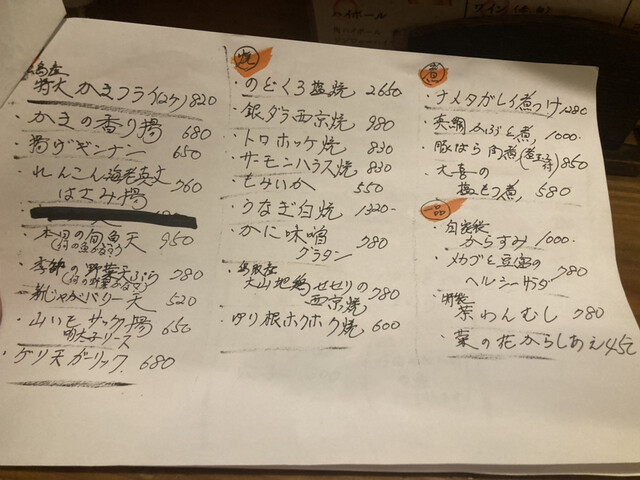 ハイボール
特大 かきフライ(2ケ) 820
・かきの香り揚 680
・揚ゲギンナン 650
・れんこん海老真丈
はさみ揚 760
・本日の旬魚天 950
・季節の野菜天ぷら 780
・新じゃがバリー天 520
・山いモサック揚 650
明太子ソース
・ゲソ天ガーリック 680
焼
・のどくろ塩焼 2650
・銀ダラ西京焼 980
・トロホッケ焼 830
・サーモンハラス焼 830
・もみいか 550
・うなぎ白焼 1320-
・かに味噌
グラタン 780
・鳥取産
大山地鶏セセリの
西京焼 780
・ゆり根ホクホク焼 600
煮
・ナメタガレイ煮つけ 1280
・真鯛かぶと煮 1000-
・豚ばら角煮(煮玉子付) 850
・大喜の
塩もつ煮 580
一品
・自家製
からすみ 1000-
・メカブと豆富の
ヘルシーサラダ 780
・特製
茶わんむし 780
・菜の花からしあえ 450